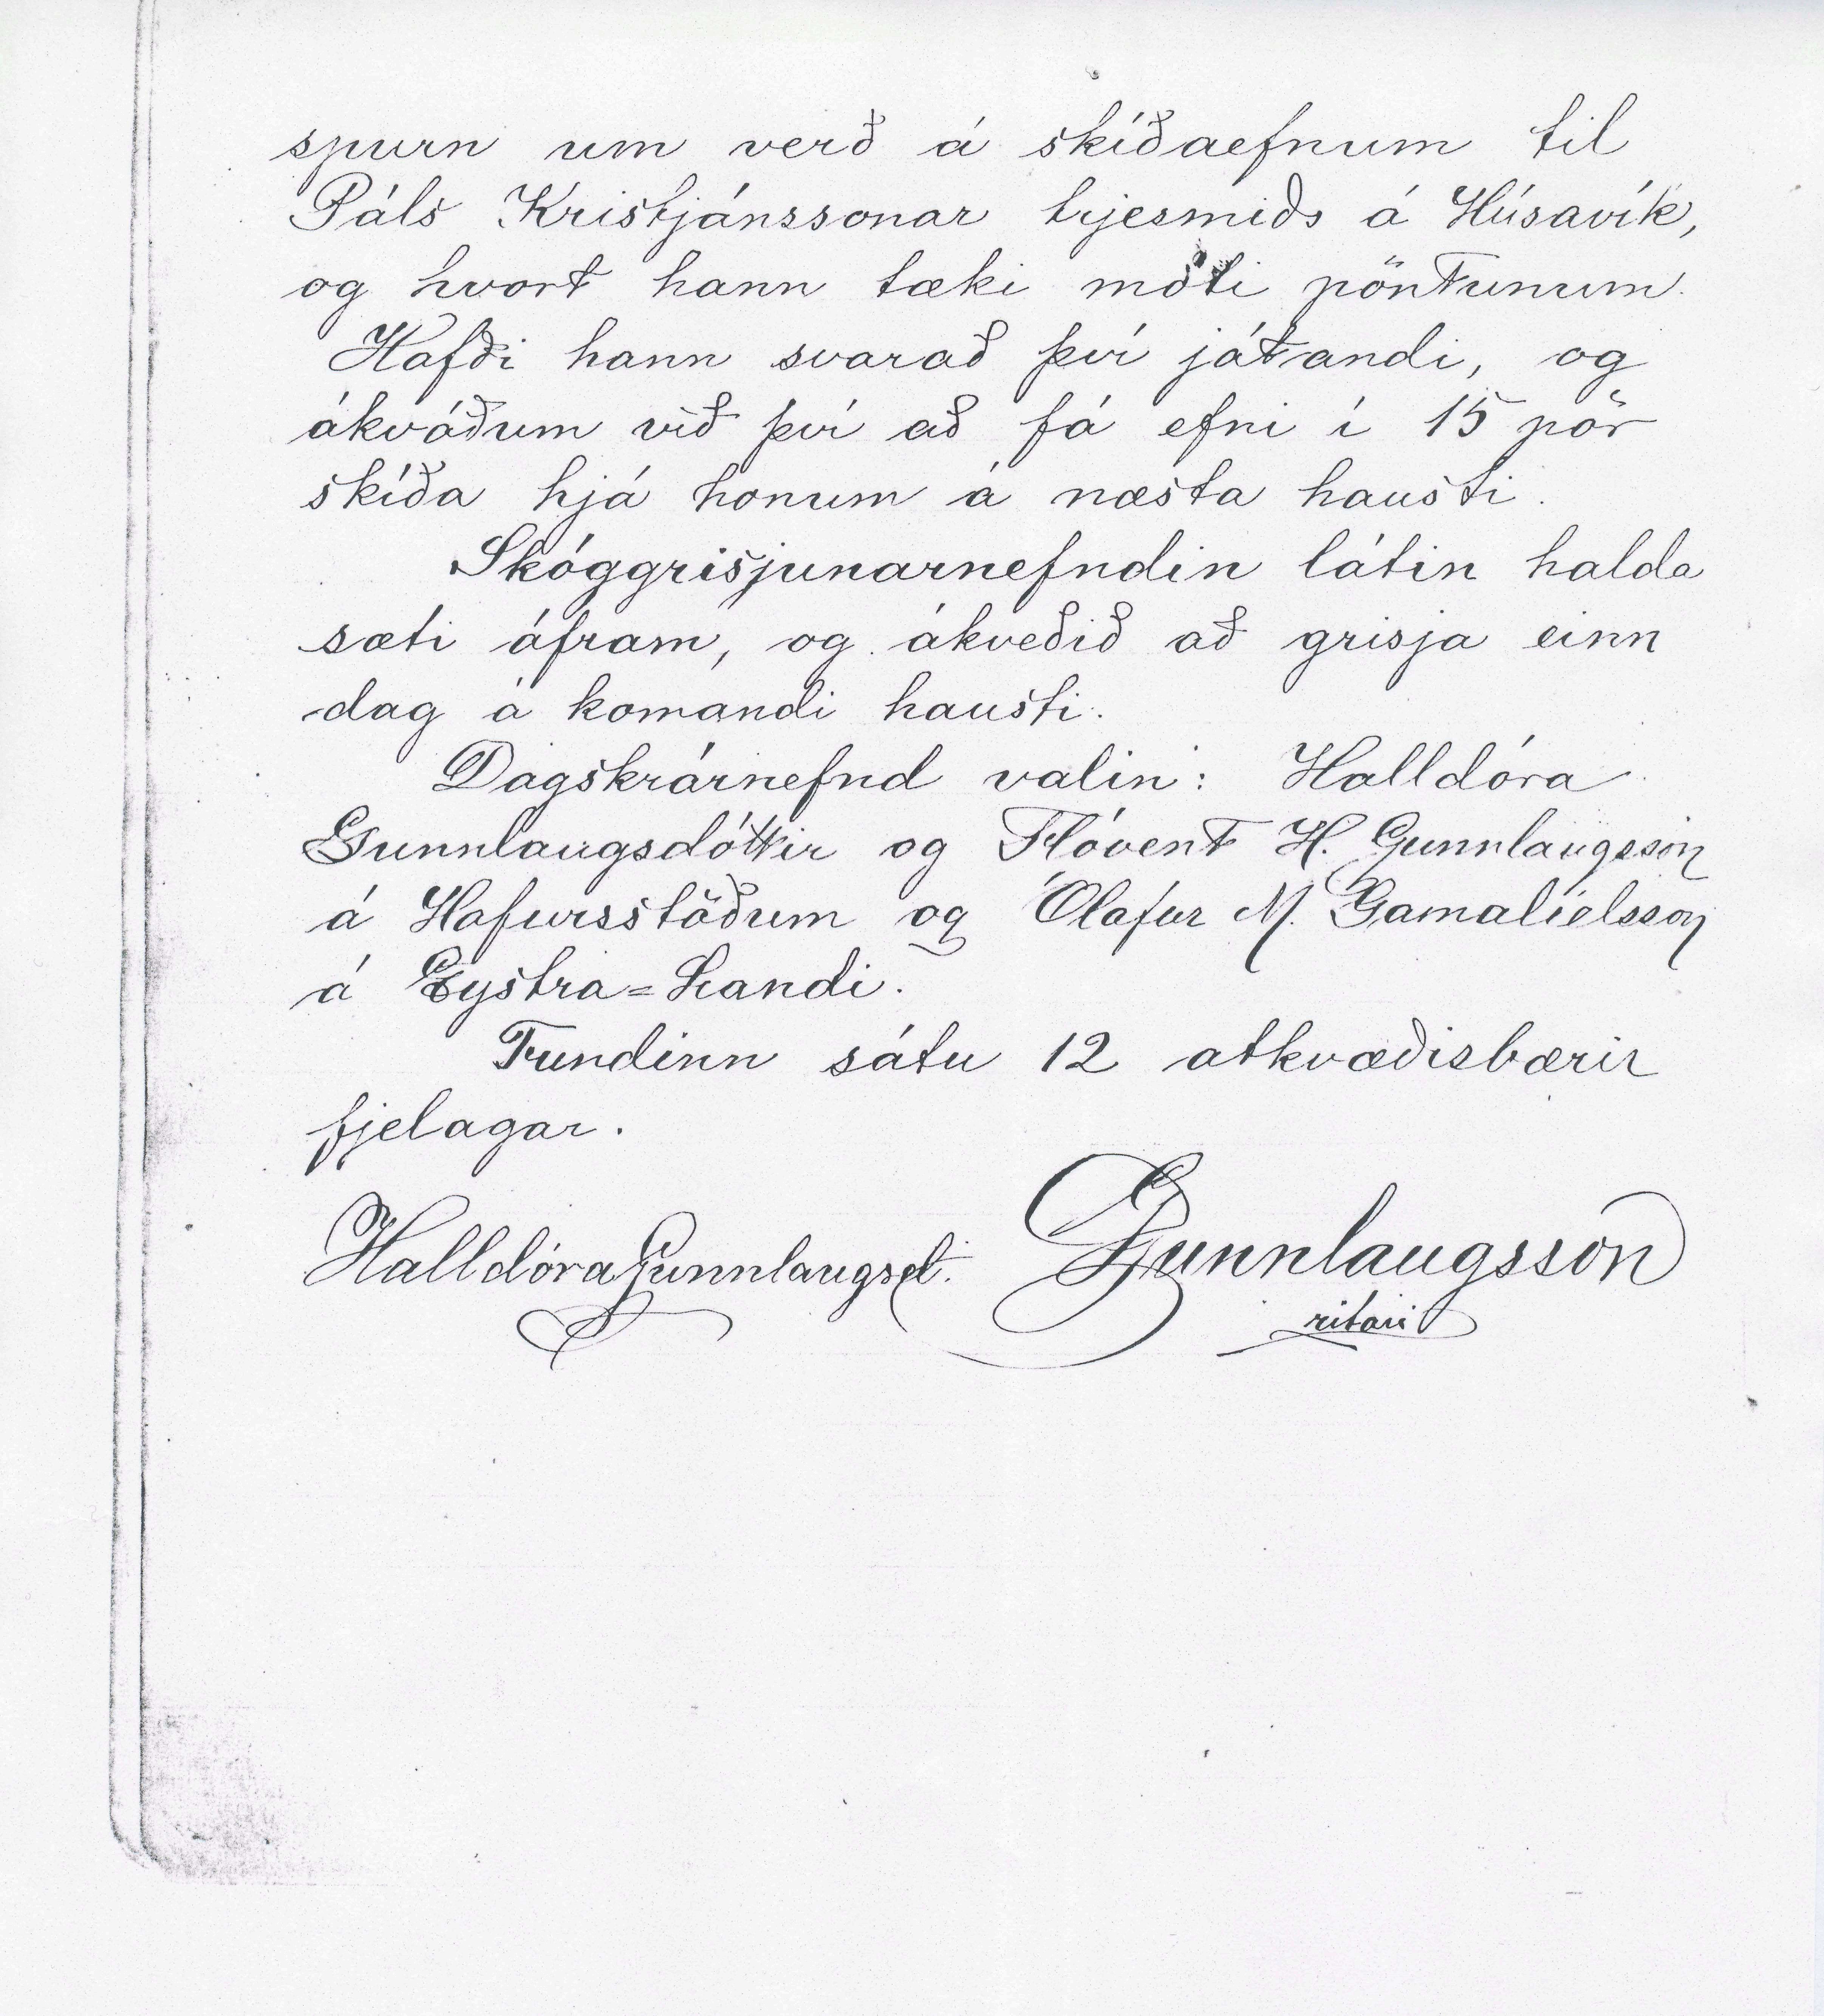 spurn um verð á skíðaefnum til
Páls Kristjánssonar trjesmiðs á Húsavík,
og hvort hann tæki móti pöntunum.
Hafði hann svarað því játandi, og
ákváðum við því að fá efni í 15 pör
skíða hjá honum á næsta hausti.
Skóggrisjunarnefndin látin halda
sæti áfram, og ákveðið að grisja einn
dag á komandi hausti.
Dagskrárnefnd valin: Halldóra
Gunnlaugsdóttir og Flóvent H. Gunnlaugsson
á Hafursstöðum og Ólafur M. Gamalíelsson
á Eystra=Landi.
Fundinn sátu 12 atkvæðisbærir
fjelagar.
Halldóra Gunnlaugsd. Gunnlaugsson
ritari